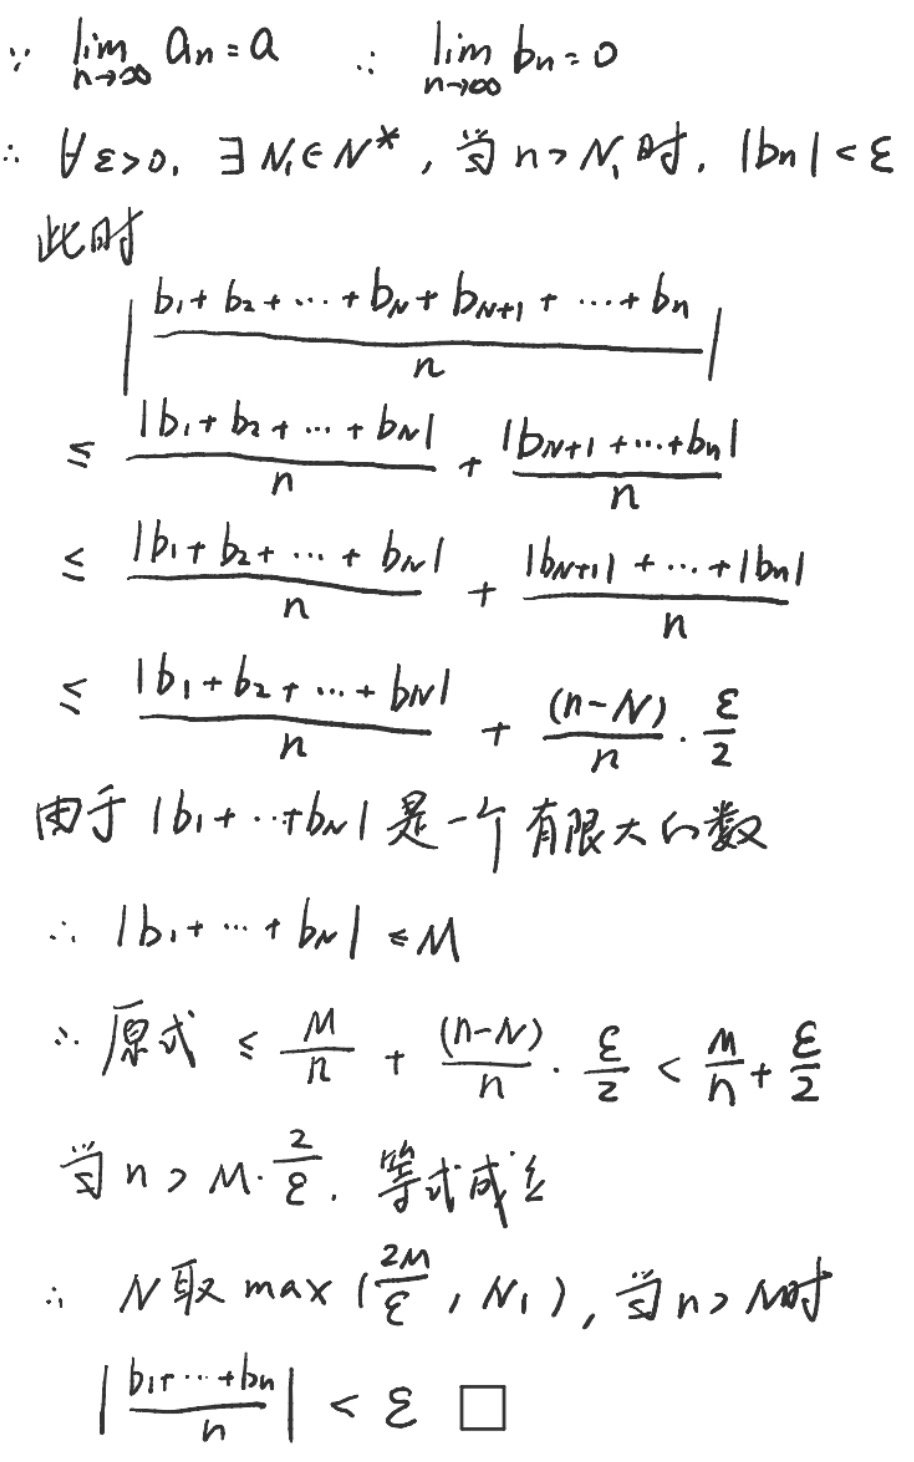 ∵ lim_{n→∞} a_n = a ∴ lim_{n→∞} b_n = 0
∴ ∀ε>0, ∃N₁∈N*, 当n>N₁时, |b_n|<ε
此时
|(b₁+b₂+⋯+b_N+b_{N+1}+⋯+b_n)/n|
≤ |b₁+b₂+⋯+b_N|/n + |b_{N+1}+⋯+b_n|/n
≤ |b₁+b₂+⋯+b_N|/n + (|b_{N+1}|+⋯+|b_n|)/n
≤ |b₁+b₂+⋯+b_N|/n + (n-N)/n · ε/2
由于|b₁+⋯+b_N|是一个有限大的数
∴ |b₁+⋯+b_N| ≤ M
∴ 原式 ≤ M/n + (n-N)/n · ε/2 < M/n + ε/2
当n>M·2/ε. 等式成立
∴ N取max(2M/ε, N₁), 当n>N时
|(b₁+⋯+b_n)/n| < ε □